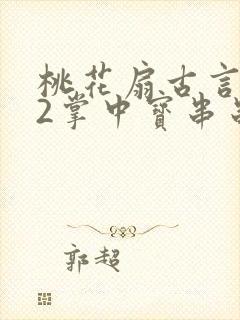 桃花扇古言
2掌中寳串
郭超